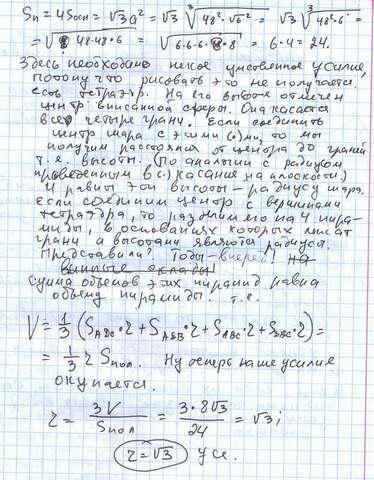 Sп = 4Sосн = √3a² = √3 ∛(48²·√6²) = √3 ∛(48²·6) =
= √(48·48·6) = √(6·6·6·8·8) = 6·4 = 24.
Здесь необходимо некое умственное усилие,
потому что рисовать это не получается.
есть тетраэдр. На его высоте отмечен
центр вписанной сферы. Она касается
всех четырех граней. Если соединить
центр шара с этими (·)ми, то мы
получим расстояния от центра до граней
т.е. высоты. (По аналогии с радиусом
проведенным в (·) касания на плоскости)
И равны эти высоты – радиусу шара.
Если соединим центр с вершинами
тетраэдра, то разделим его на 4 пира-
миды, в основаниях которых лежат
грани а высотами являются радиусы.
Представили? Тогда – вперед! на
винные склады!
Сумма объемов этих пирамид равна
объему пирамиды. т.е.
V = 1/3 (SADC·r + SASB·r + SABC·r + SSBC·r) =
= 1/3 r Sпол. Ну теперь наше усилие
окупается.
r = 3V/Sпол = 3·8√3/24 = √3;
r = √3 Усе.